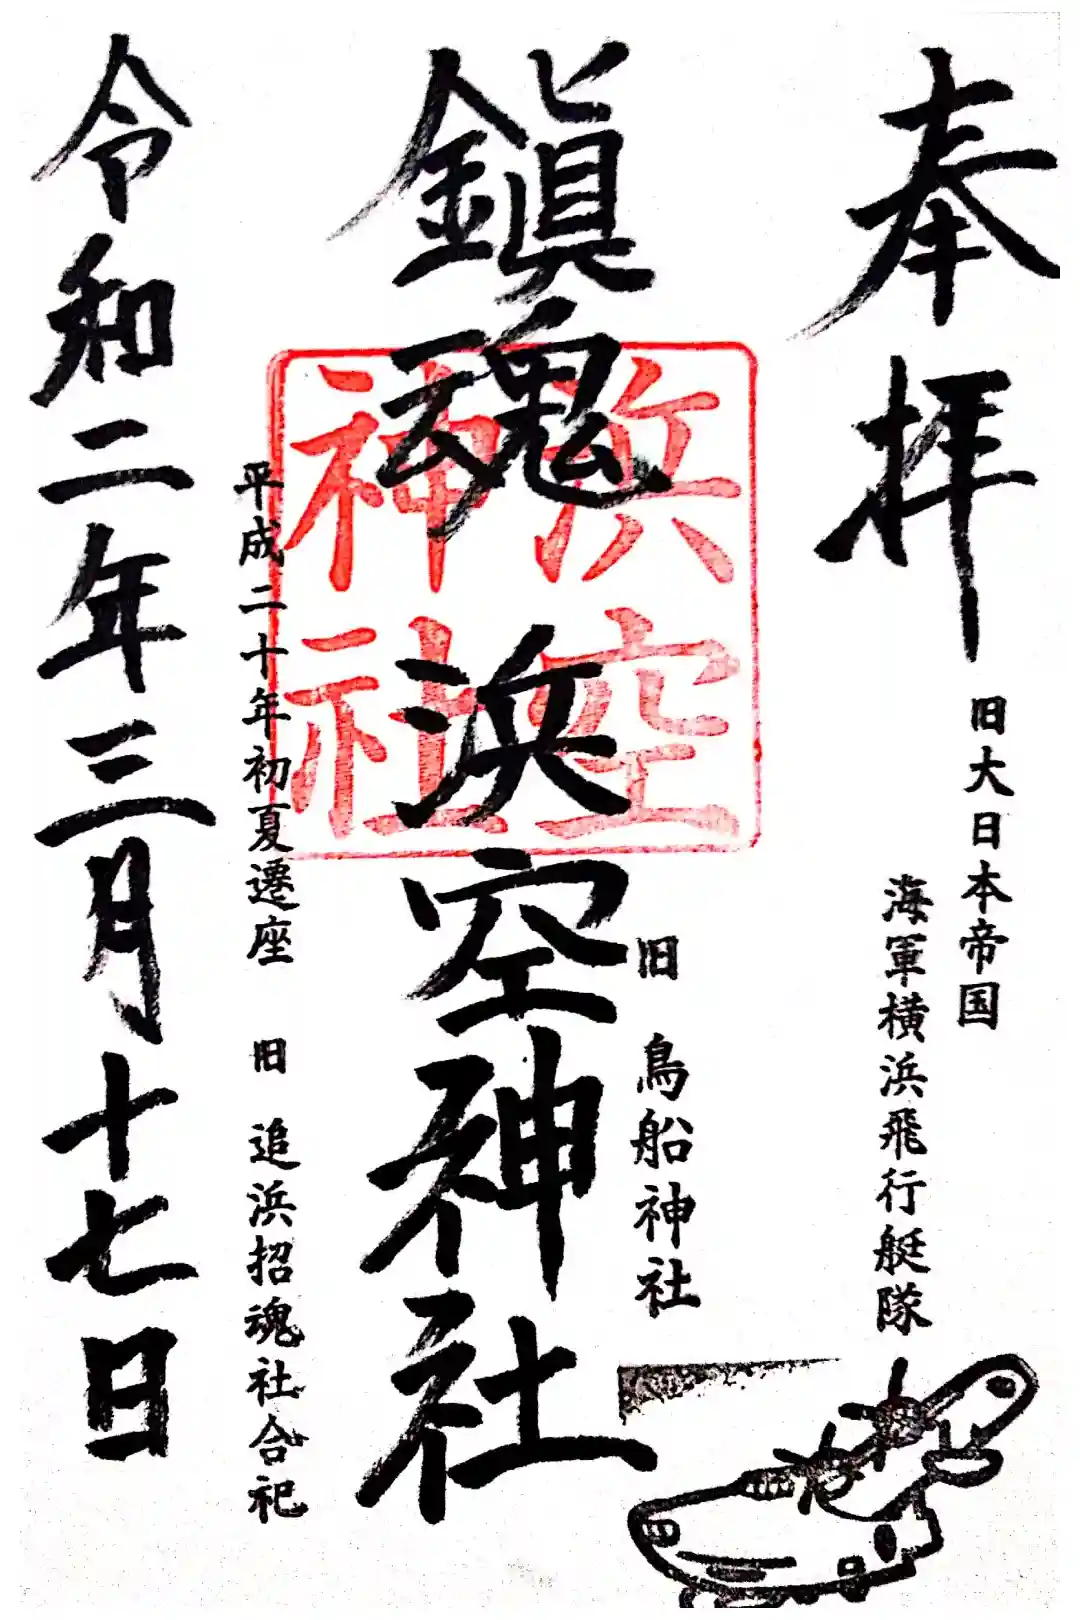 奉拝
旧大日本帝国
海軍横浜飛行艇隊
旧 鳥船神社
鎮魂 浜空神社
浜空
神社
平成二十年初夏遷座 旧 追浜招魂社合祀
令和二年三月十七日